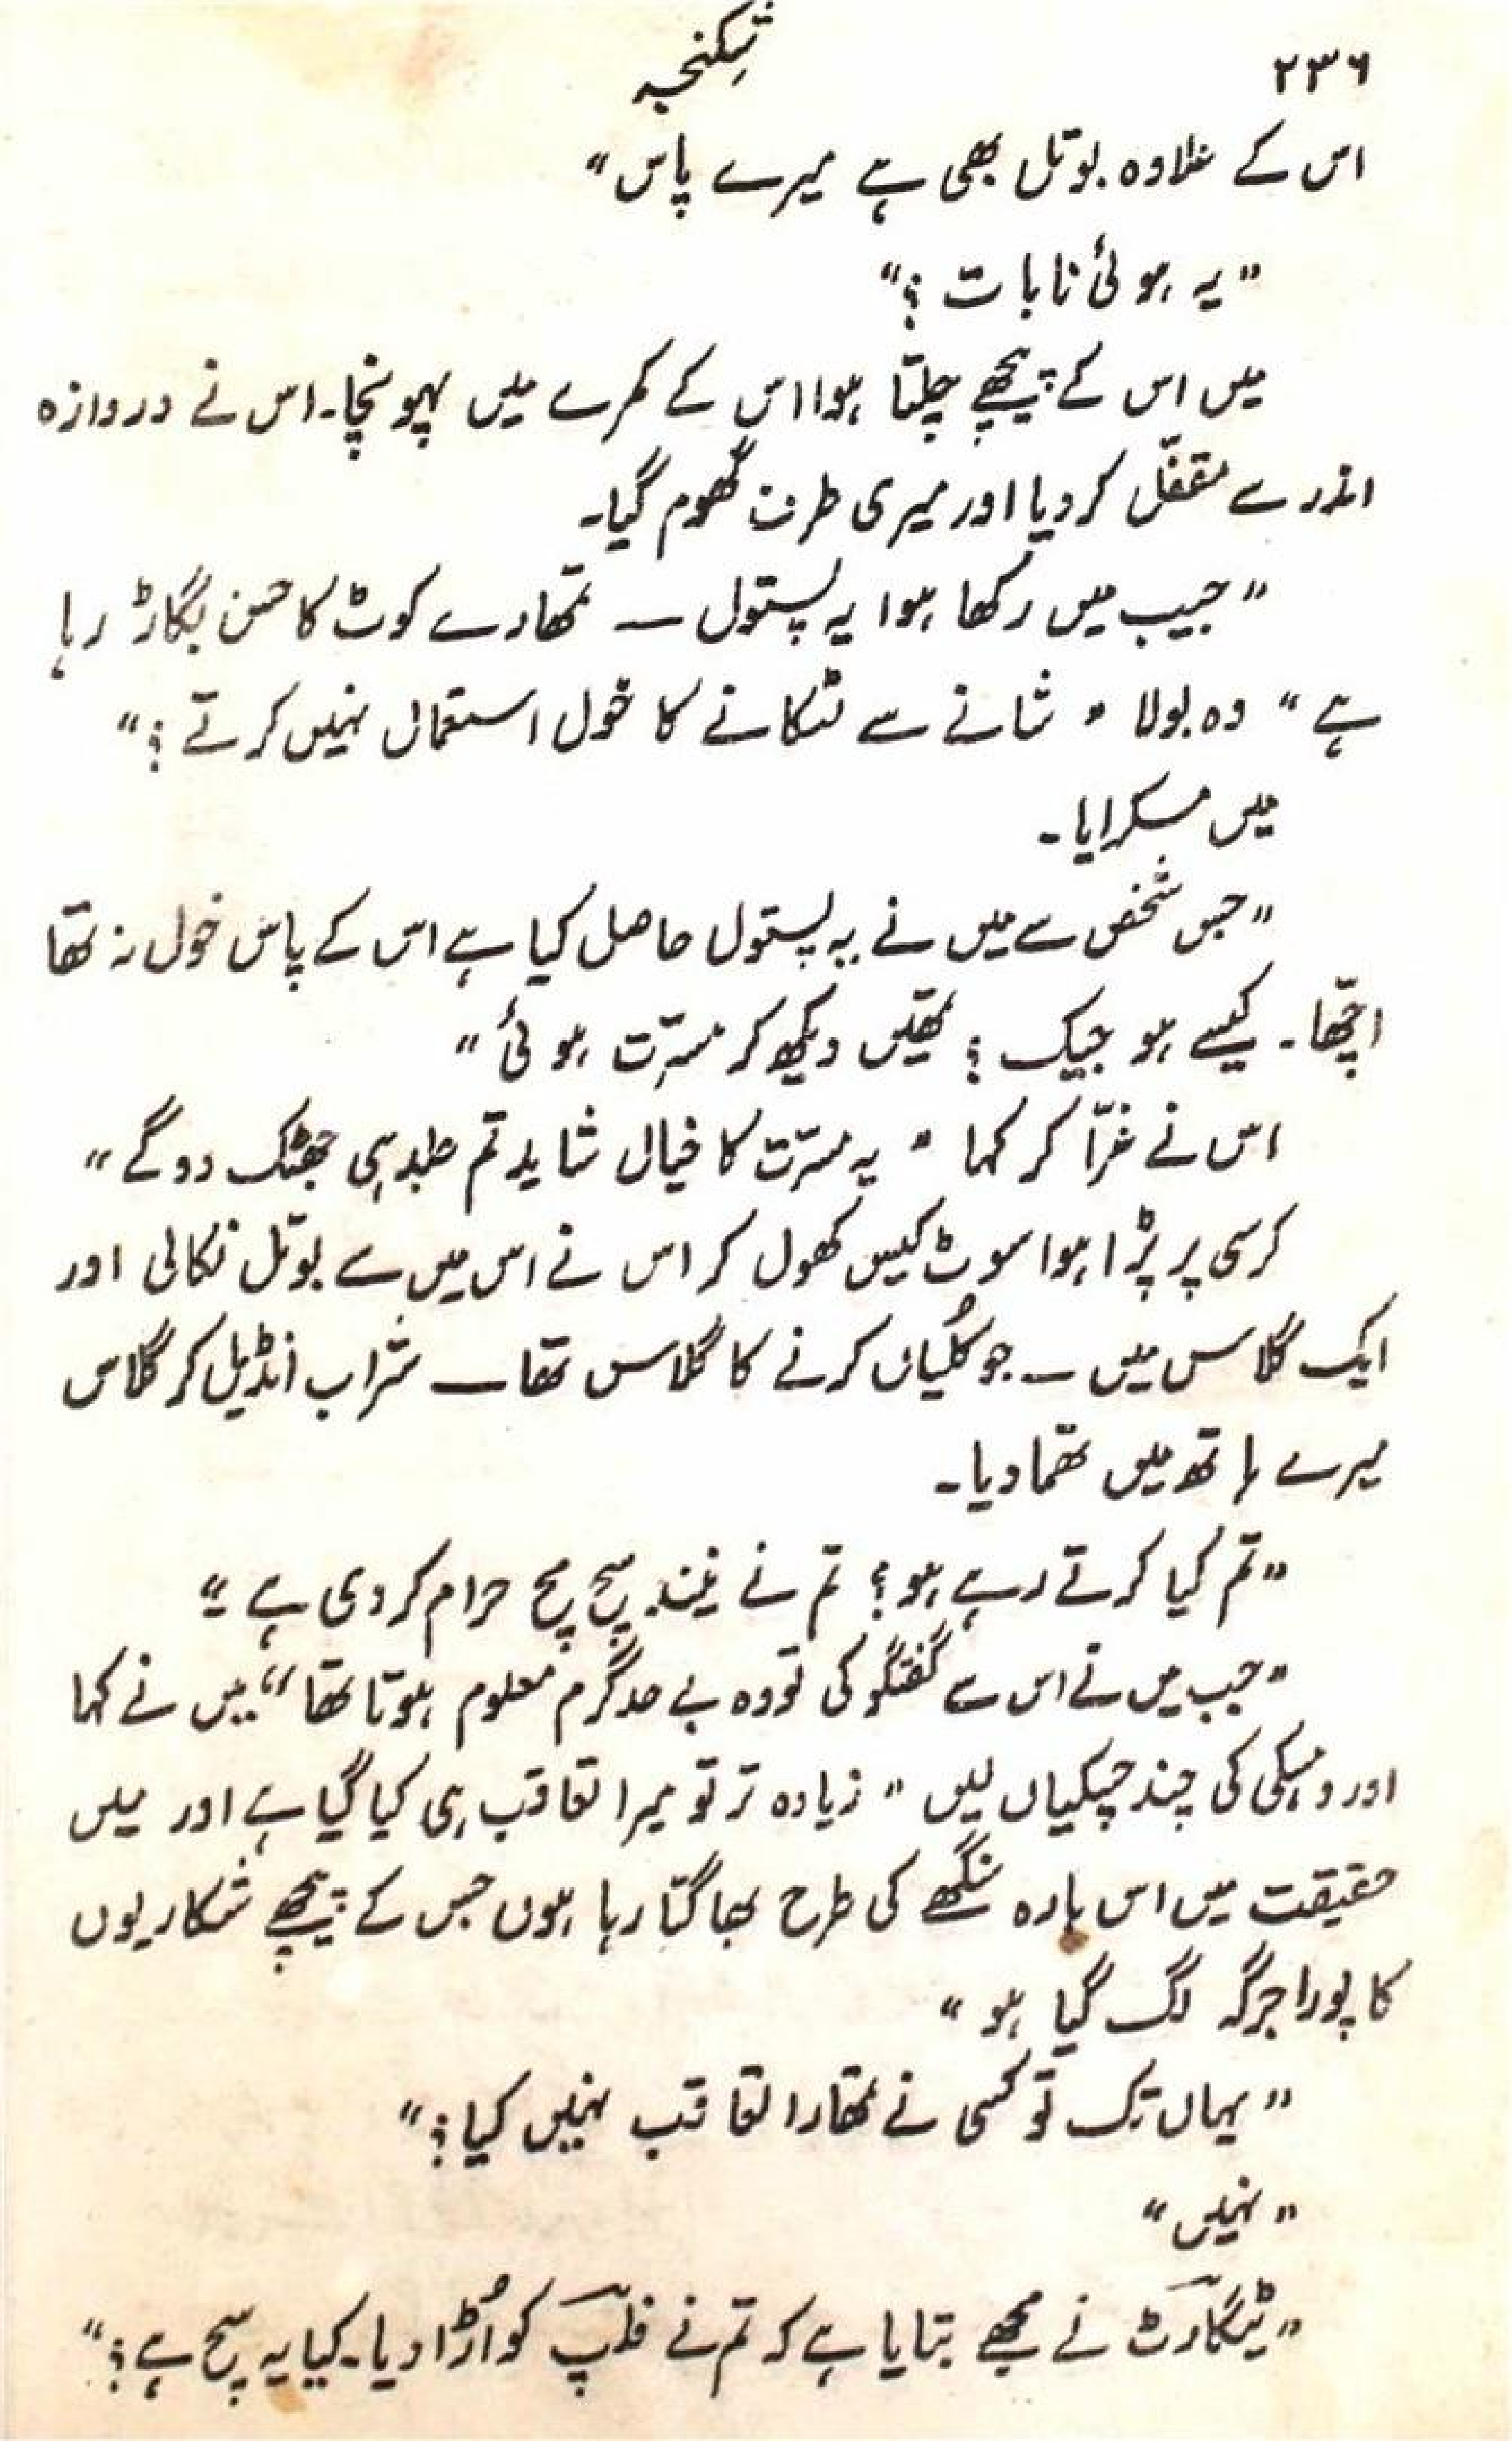 ۲۳۶
شکنجہ
اس کے علاوہ بوتل بھی ہے میرے پاس"
"یہ ہوئی نا بات ؟"
میں اس کے پیچھے چلتا ہوا اس کے کمرے میں پہونچا۔ اس نے دروازہ
اندر سے مقفّل کر دیا اور میری طرف گھوم گیا۔
"جیب میں رکھا ہوا یہ پستول — تمھارے کوٹ کا حسن بگاڑ رہا
ہے" وہ بولا "شانے سے لٹکانے کا خول استعمال نہیں کرتے ؟"
میں مسکرایا۔
"جس شخص سے میں نے یہ پستول حاصل کیا ہے اس کے پاس خول نہ تھا
اچّھا۔ کیسے ہو جیک ؟ تمھیں دیکھ کر مسرّت ہوئی"
اس نے غرّا کر کہا "یہ مسرّت کا خیال شاید تم جلد ہی جھٹک دو گے"
کرسی پر پڑا ہوا سوٹ کیس کھول کر اس نے اس میں سے بوتل نکالی اور
ایک گلاس میں — جو کُلّیاں کرنے کا گلاس تھا — شراب انڈیل کر گلاس
میرے ہاتھ میں تھما دیا۔
"تم کیا کرتے رہے ہو؟ تم نے نیند سچ مچ حرام کر دی ہے۔"
"جب میں نے اس سے گفتگو کی تو وہ بے حد گرم معلوم ہوتا تھا" میں نے کہا
اور وہسکی کی چند چسکیاں لیں "زیادہ تر تو میرا تعاقب ہی کیا گیا ہے اور میں
حقیقت میں اس بارہ سنگھے کی طرح بھاگتا رہا ہوں جس کے پیچھے شکاریوں
کا پورا جرگہ لگ گیا ہو"
"یہاں تک تو کسی نے تمھارا تعاقب نہیں کیا؟"
"نہیں"
"ٹیگارٹ نے مجھے بتایا ہے کہ تم نے فلپ کو اُڑا دیا۔ کیا یہ سچ ہے؟"